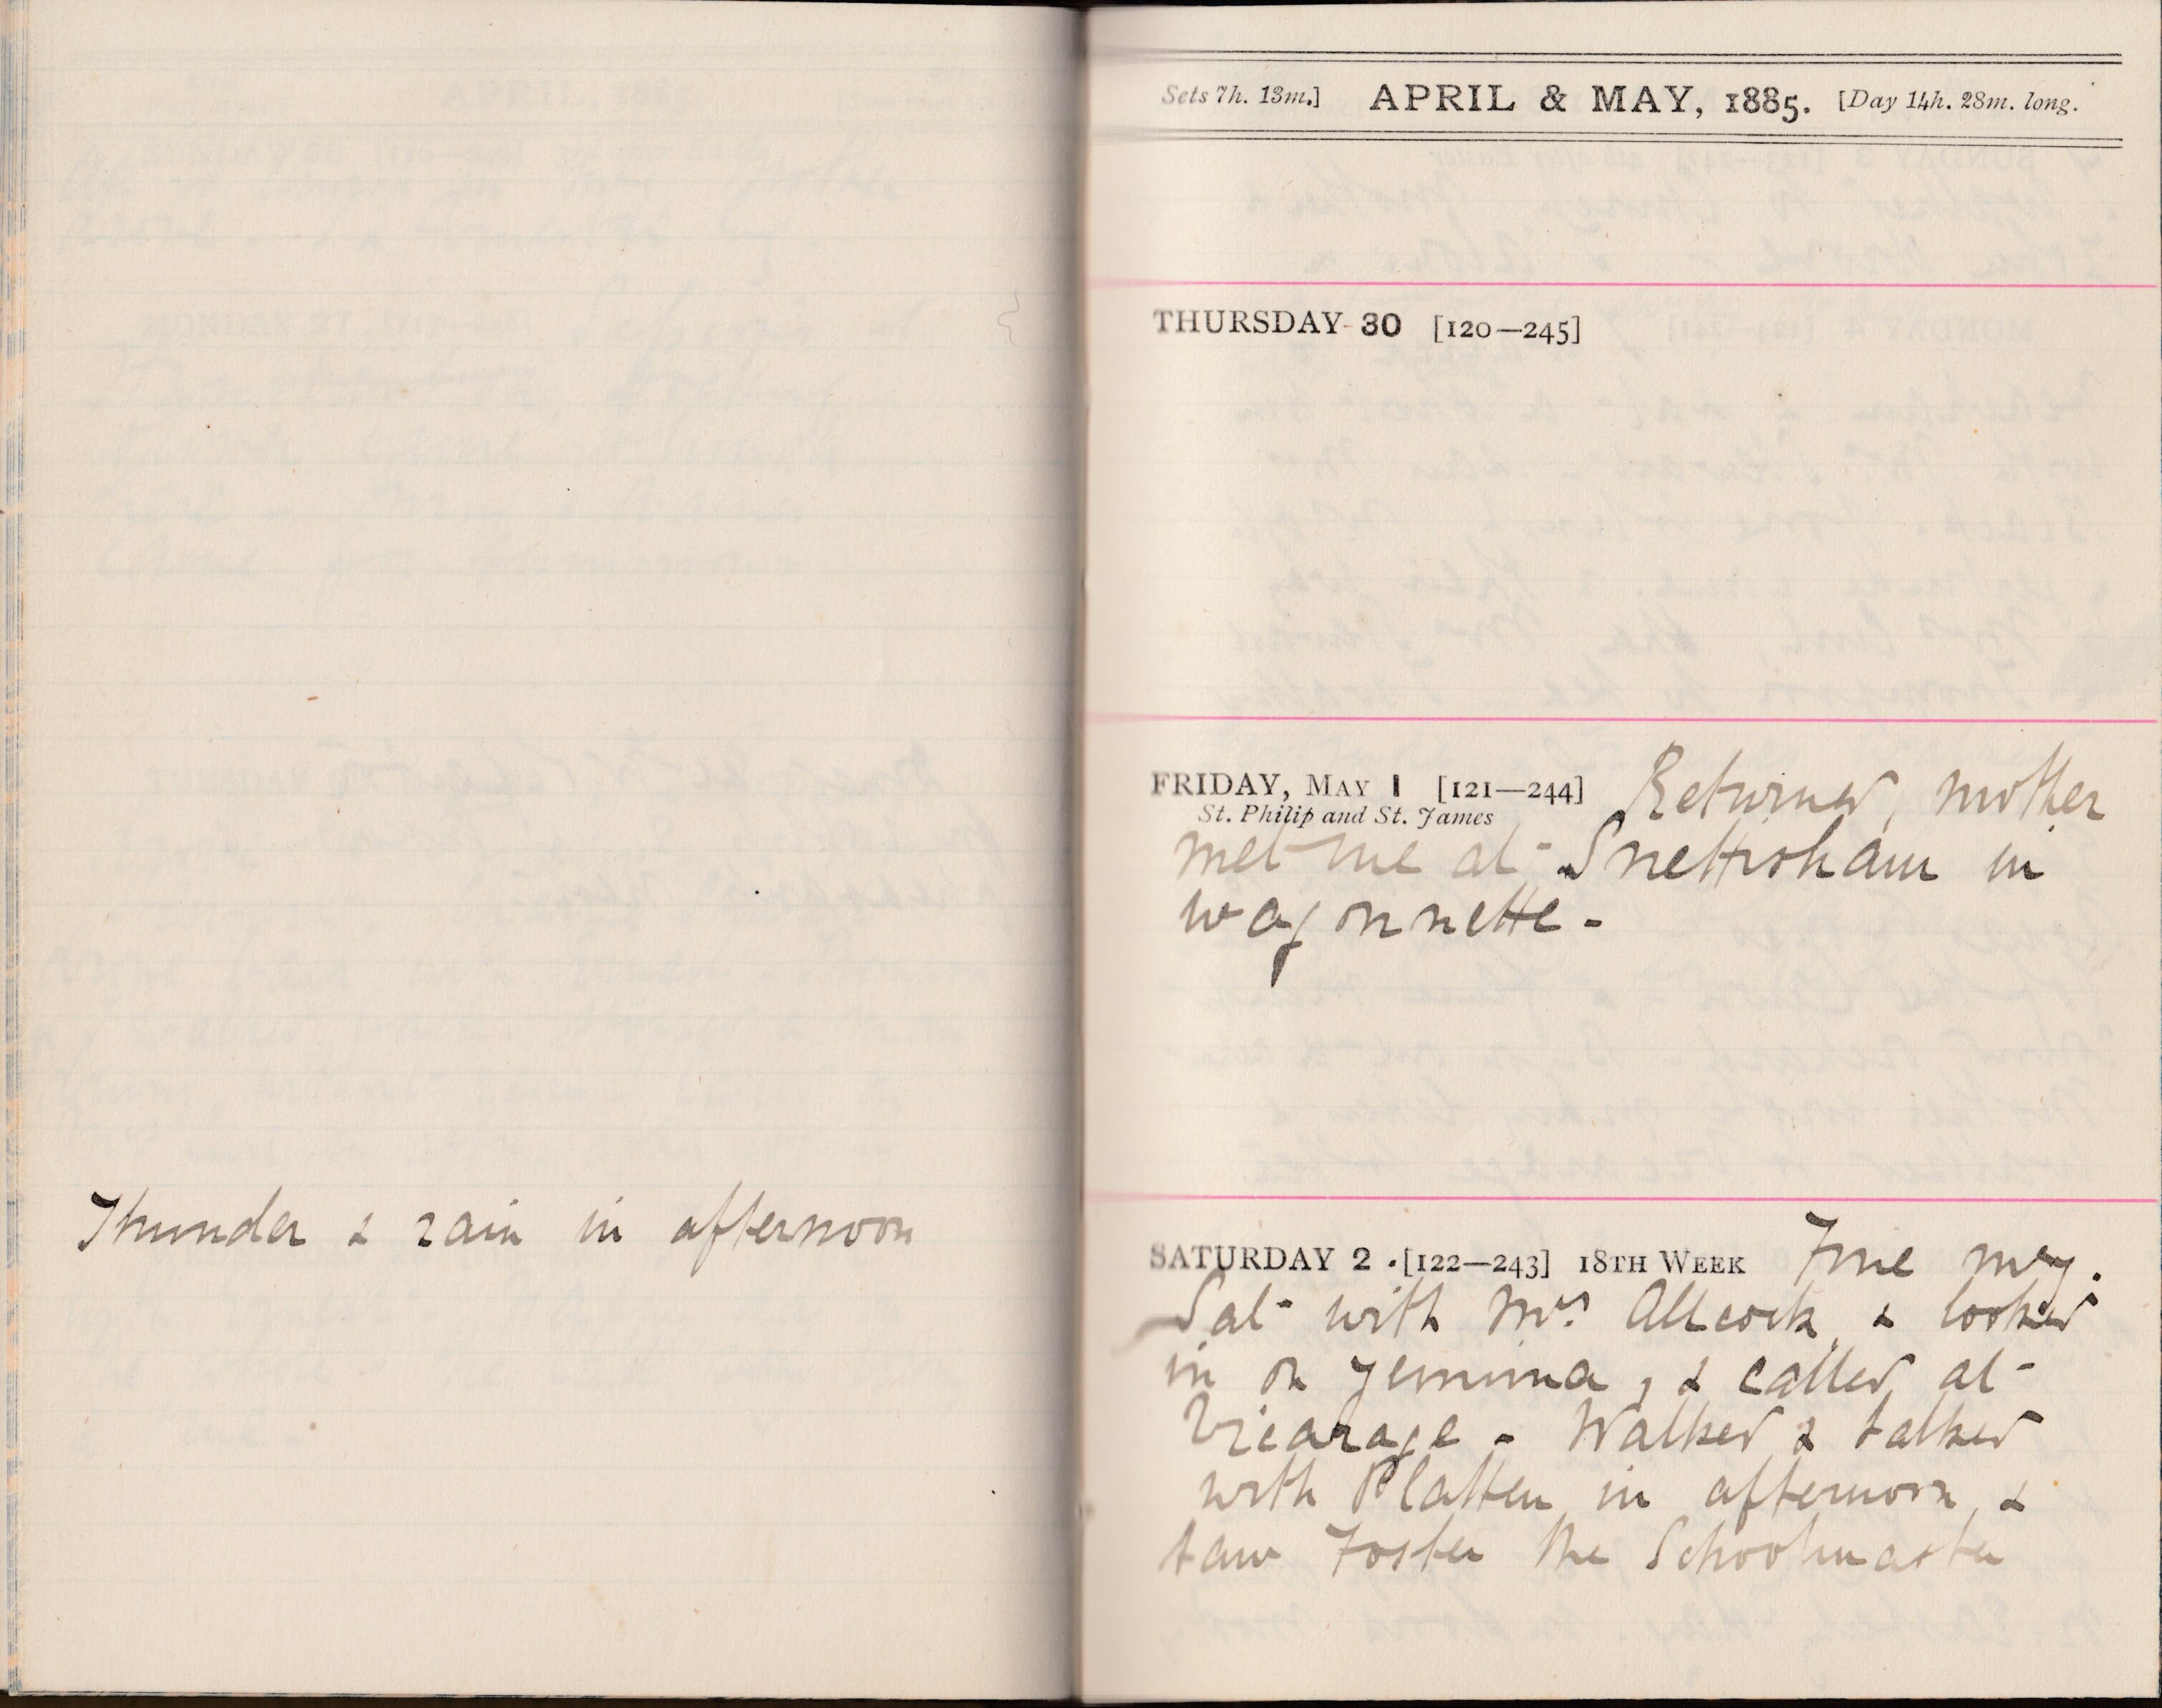 Thunder & rain in afternoon
Sets 7h. 13m.] APRIL & MAY, 1885. [Day 14h. 28m. long.
THURSDAY 30 [120—245]
FRIDAY, MAY 1 [121—244] Returned, mother
St. Philip and St. James
met me at Snettisham in
wagonnette -
SATURDAY 2 [122—243] 18TH WEEK Fine
Sat with Mrs. Allcock, & looked
in on Jemima, & called at
Vicarage - Walked & talked
with Platten in afternoon, &
saw Foster the Schoolmaster